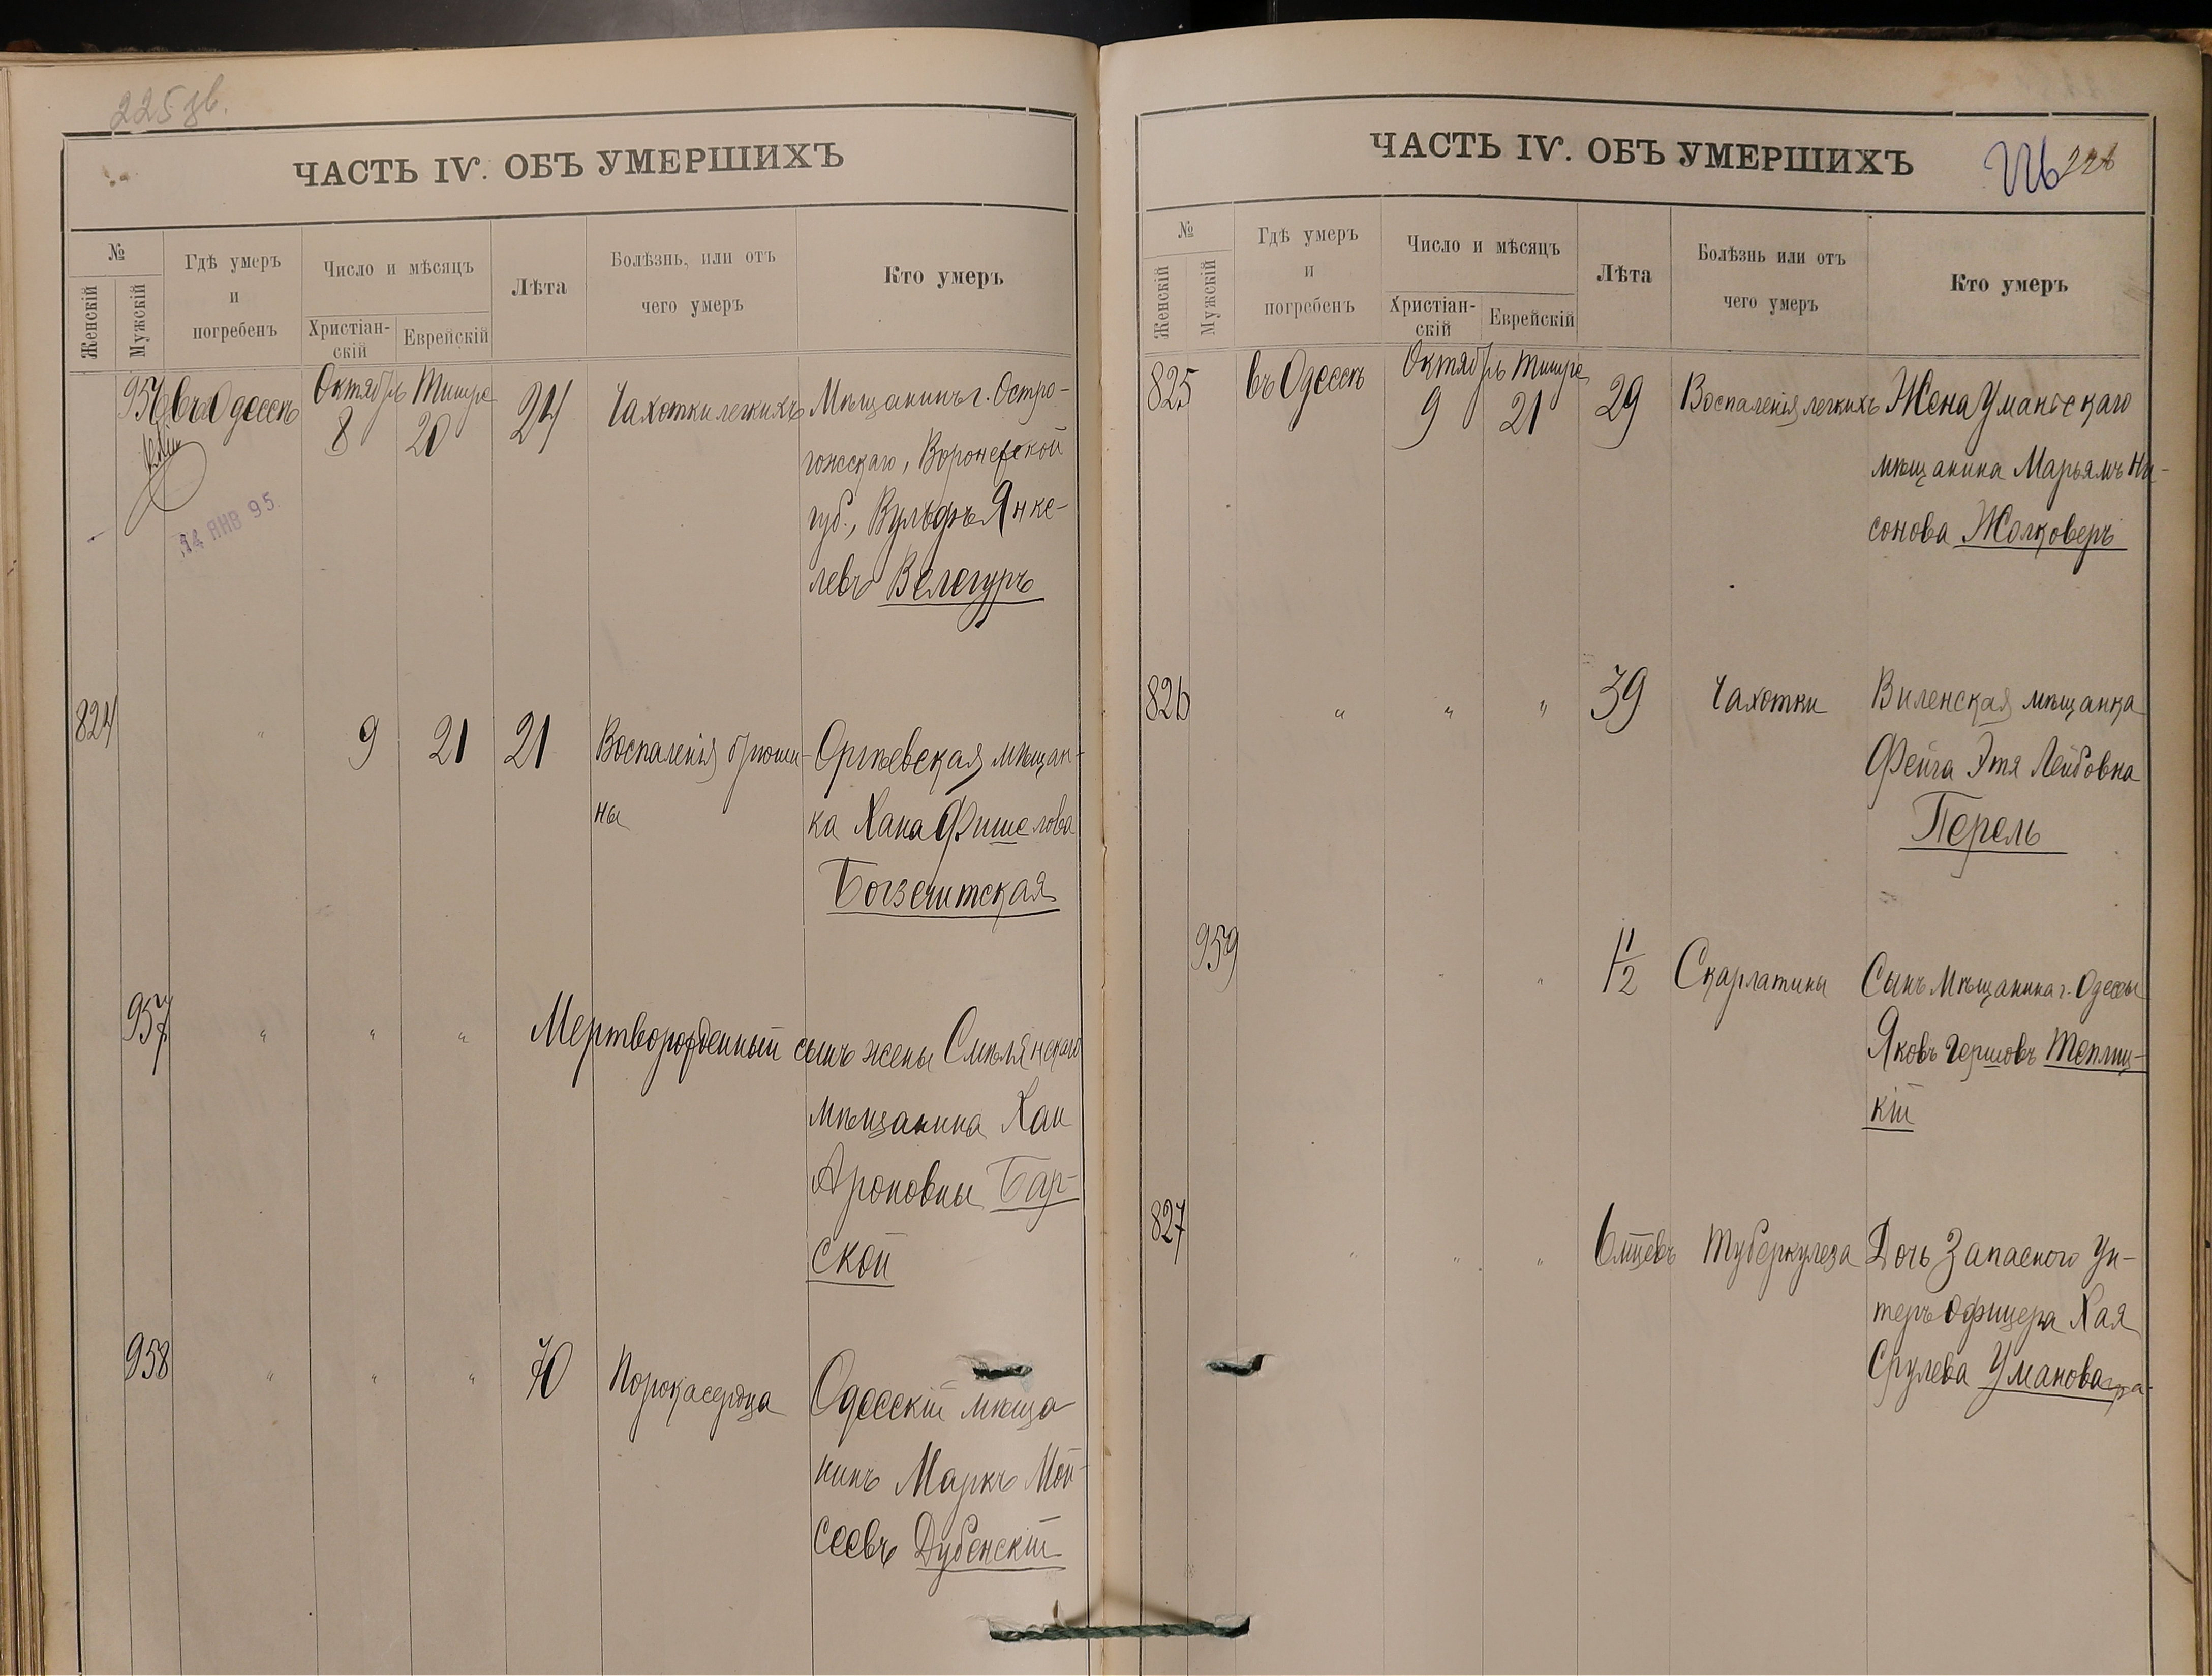 225 зв.
ЧАСТЬ IV. ОБЪ УМЕРШИХЪ
№
Женскій
Мужскій
Гдѣ умеръ
и
погребенъ
Число и мѣсяцъ
Христіан-
скій
Еврейскій
Лѣта
Болѣзнь, или отъ
чего умеръ
Кто умеръ
956 въ Одессѣ Октябрь 8 Тишре 20 24 Чахотки легкихъ Мѣщанинъ г. Остро-
гожскаго, Воронежской
губ., Вульфъ Янке-
левъ Велегуръ
14 ЯНВ 95.
824 " 9 21 21 Воспаленія брюши- Оргѣевская мѣщан-
ны ка Хана Фишелова
Богзечитская
957 " " " Мертворожденный сынъ жены Смѣлянскаго
мѣщанина Хаи
Ароновны Бар-
ской
958 " " " 70 Порока сердца Одесскій мѣща-
нинъ Маркъ Мои-
сеевъ Дубенскій
ЧАСТЬ IV. ОБЪ УМЕРШИХЪ
226 226
№
Женскій
Мужскій
Гдѣ умеръ
и
погребенъ
Число и мѣсяцъ
Христіан-
скій
Еврейскій
Лѣта
Болѣзнь или отъ
чего умеръ
Кто умеръ
825 въ Одессѣ Октябрь 9 Тишре 21 29 Воспаленія легкихъ Жена Уманскаго
мѣщанина Марьямъ Ни-
сонова Жолковеръ
826 " " " 39 Чахотки Виленская мѣщанка
Фейга Этя Лейбовна
Перель
959 " " " 1 1/2 Скарлатины Сынъ мѣщанина г. Одессы
Яковъ Гершовъ Теплиц-
кій
827 " " " 6 мцевъ Туберкулеза Дочь Запасного Ун-
теръ офицера Хая
Срулева Уманова